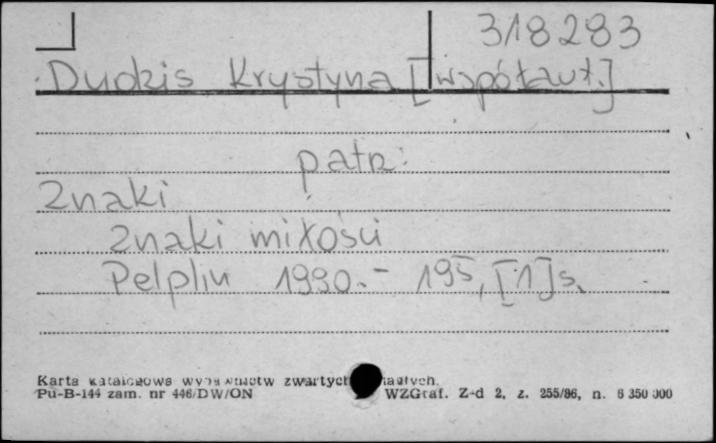 318283
Dudzis Krystyna [współaut.]
patrz:
Znaki
Znaki miłości
Pelplin 1990. - 195, [1] s.
Karta katalogowa wydawnictw zwartych
Pu-B-144 zam. nr 446/DW/ON WZGraf. Z-d 2, z. 255/86, n. 6 350 000